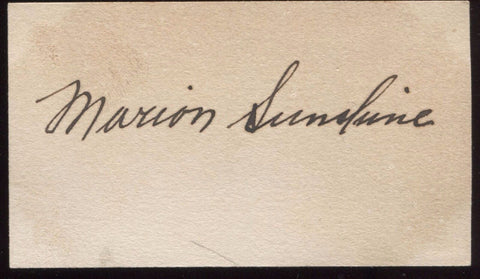 Marion Sunshine